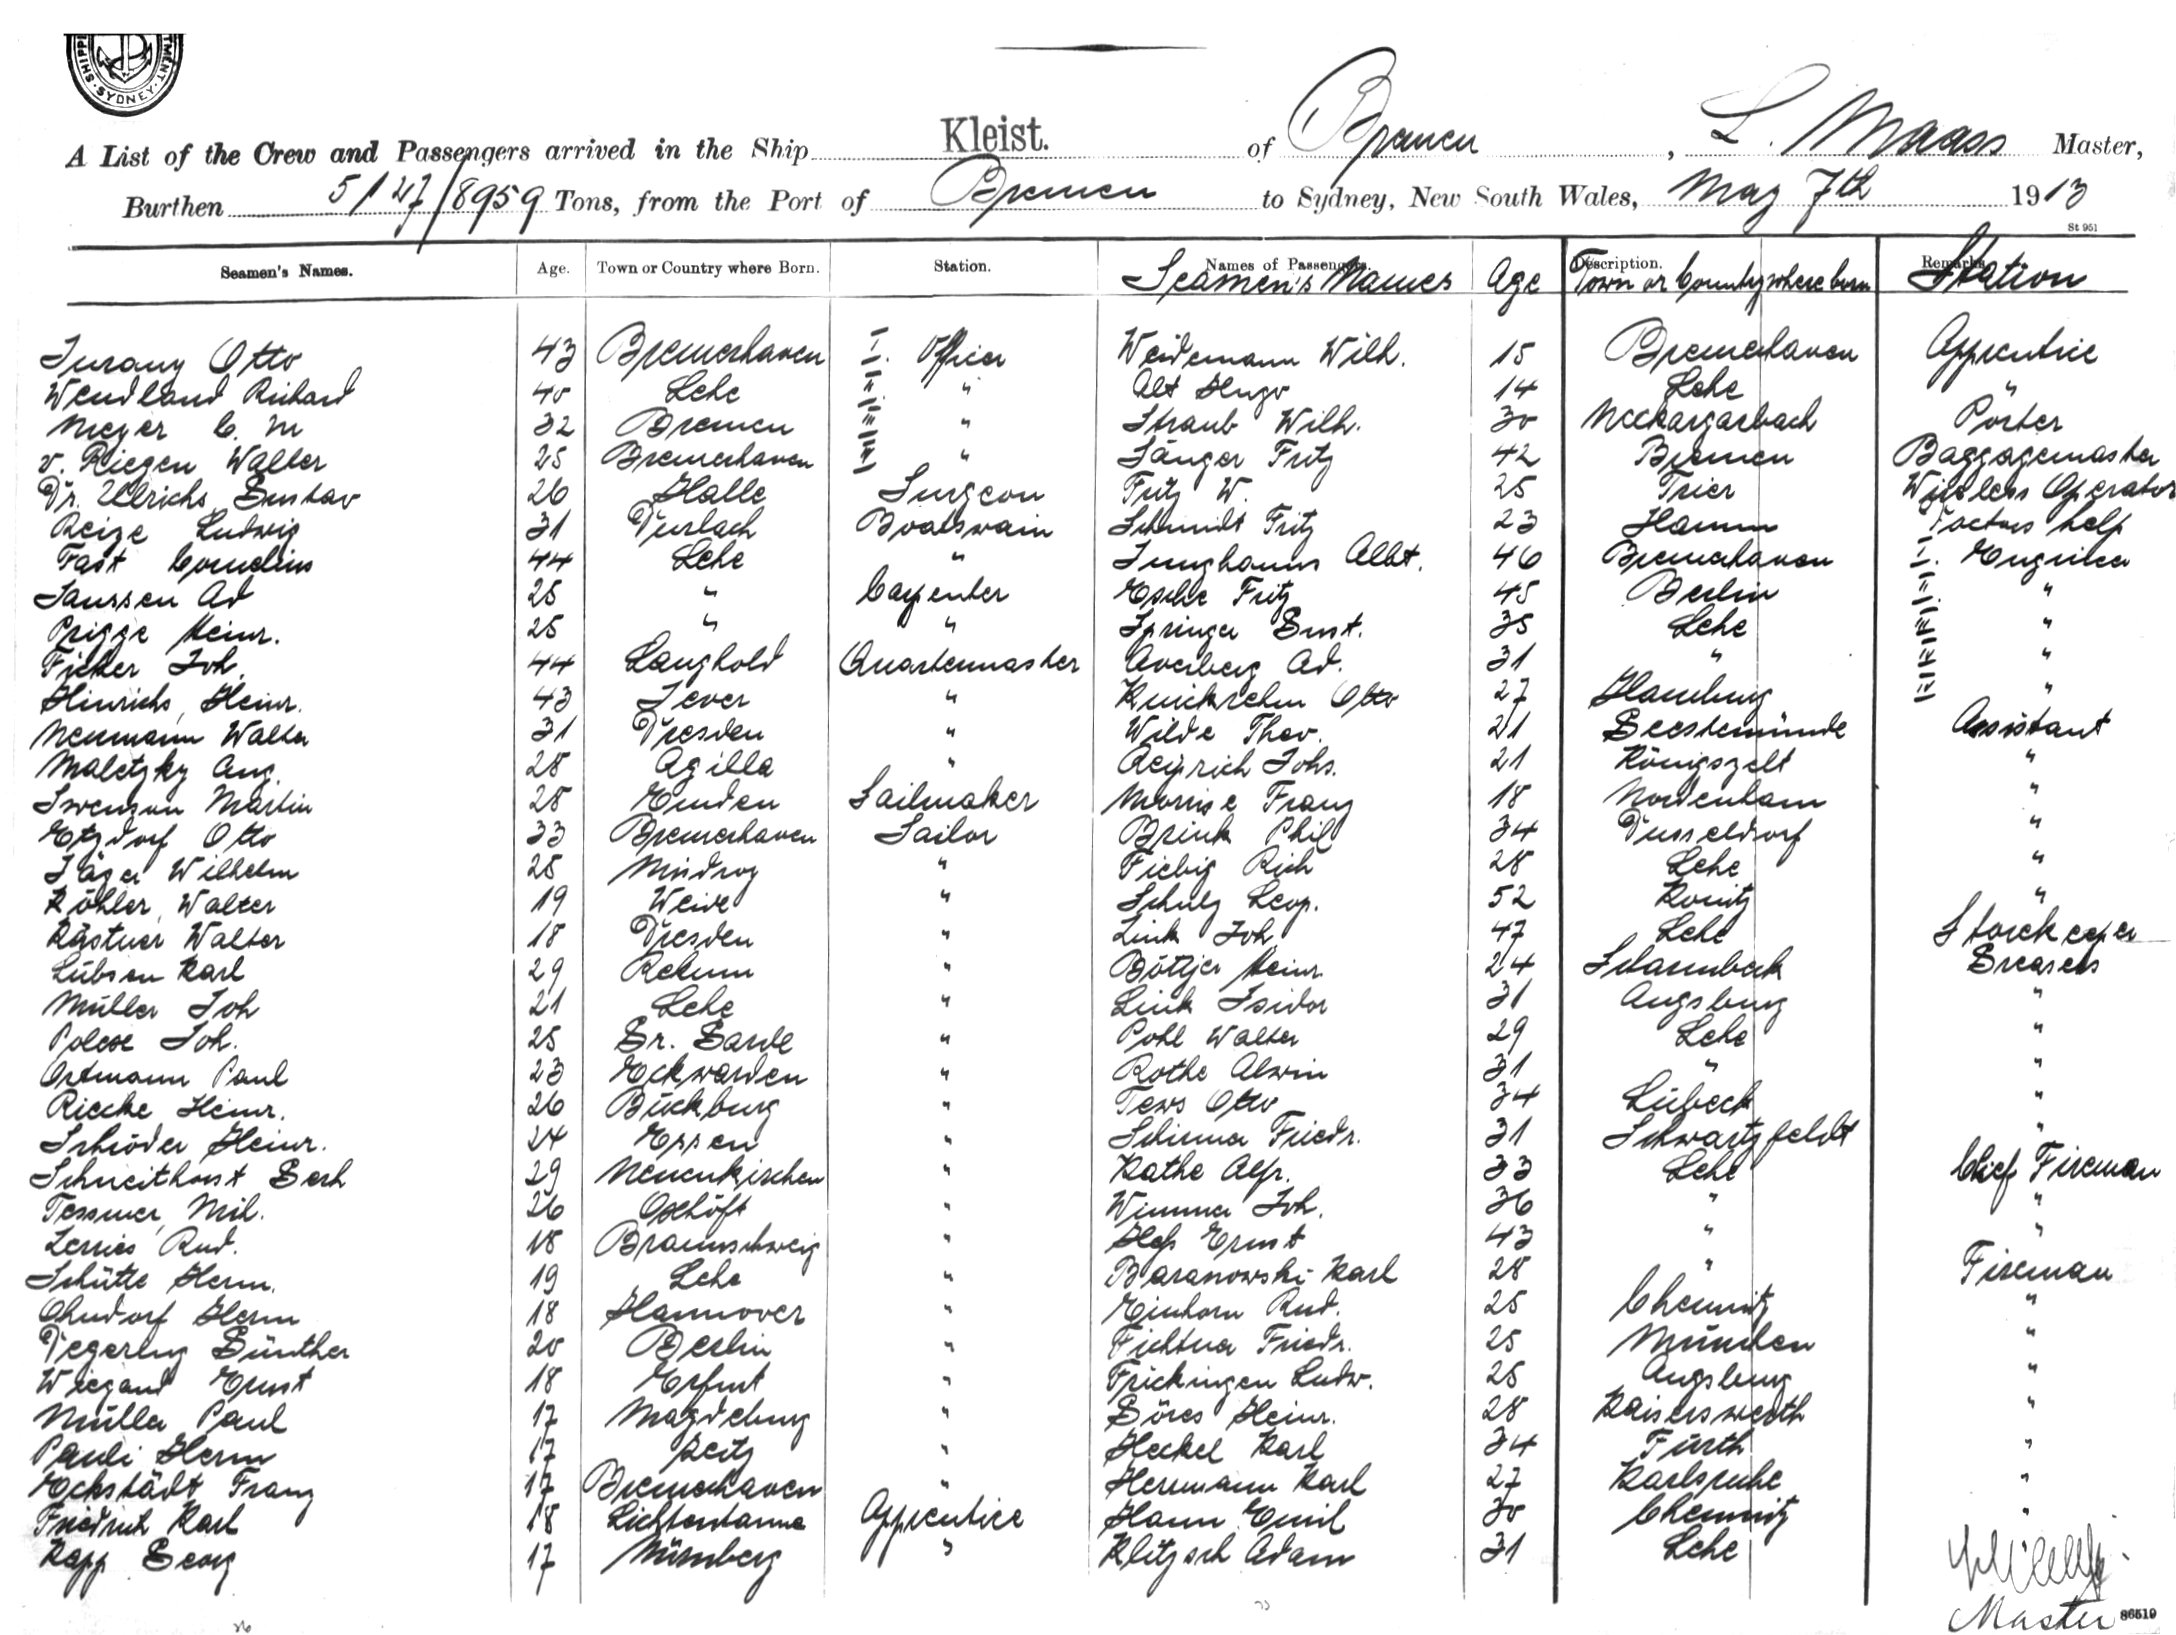 SHIPPI TMENT
SYDNEY
A List of the Crew and Passengers arrived in the Ship Kleist. of Bremen, L. Maass Master,
Burthen 5127/8959 Tons, from the Port of Bremen to Sydney, New South Wales, May 7th 1913
St 951
Seamen's Names. Age. Town or Country where Born. Station. Names of Passengers. Seamen's Names Age Description. Town or Country where born Remarks Station
Turany Otto 43 Bremerhaven I. Officer Weidemann Wilh. 15 Bremerhaven Apprentice
Wendland Richard 40 Lehe II " Alt Hugo 14 Lehe "
Meyer C. M 32 Bremen III " Straub Wilh. 30 Neckargarbach Porter
v. Riegen Walter 25 Bremerhaven IV " Sänger Fritz 42 Bremen Baggagemaster
Dr. Ulrichs Gustav 26 Halle Surgeon Fritz W. 25 Trier Wireless Operator
Reize Ludwig 31 Durlach Boatswain Schmidt Fritz 23 Hamm Doctors help
Fast Cornelius 44 Lehe " Junghanns Albt. 46 Bremerhaven I. Engineer
Janssen Ad 25 " Carpenter Esche Fritz 45 Berlin II "
Prigge Heinr. 25 " " Springer Gust. 35 Lehe III "
Ficker Joh. 44 Langhold Quartermaster Averberg Ad. 31 " "
Hinrichs, Heinr. 43 Jever " Kuickrehm Otto 27 Hamburg "
Neumann Walter 31 Dresden " Wilde Theo. 21 Geestemünde Assistant
Maletzky Aug. 28 Agilla " Reyrich Johs. 21 Königszelt "
Swenson Martin 28 Emden Sailmaker Morrise Franz 18 Nordenham "
Etzdorf Otto 33 Bremerhaven Sailor Brink Phil 34 Dusseldorf "
Jäger Wilhelm 25 Misdroy " Fiebig Rich 28 Lehe "
Köhler, Walter 19 Weive " Schulz Leop. 52 Konitz "
Kästner Walter 18 Dresden " Link Joh. 47 Lehe Storekeeper
Lübsen Karl 29 Rekum " Böttjer Heinr 24 Scharmbeck Greasers
Müller Joh 21 Lehe " Link Isidor 31 Augsburg "
Joh. 25 Gr. Garde " Pohl Walter 29 Lehe "
Ortmann Paul 23 Eckwarden " Rothe Alwin 31 " "
Riecke Heinr. 26 Bückburg " Tews Otto 34 Lübeck "
Schröder Heinr. 24 Essen " Schirmer Friedr. 31 Schwartzfeldt "
Schneithorst Gerh 29 Neuenkirchen " Kathe Alfr. 33 Lehe Chief Fireman
Tessmer, Mil. 26 Oxhöft " Wimmer Joh. 36 " "
Lerries Rud. 18 Braunschweig " Heß Ernst 43 " "
Schütte Herm. 19 Lehe " Baranowski Karl 28 " Fireman
Ohndorf Herm 18 Hannover " Einhorn Rud. 25 Chemnitz "
Degering Günther 20 Berlin " Fichtner Friedr. 25 München "
Wiegand Ernst 18 Erfurt " Frickingen Ludw. 25 Augsburg "
Müller Paul 17 Magdeburg " Göres Heinr. 28 Kaiserswerth "
Pauli Herm 17 Zeitz " Heckel Karl 34 Fürth "
Eckstädt Franz 17 Bremerhaven " Herrmann Karl 27 Karlsruhe "
Friedrich Karl 18 Lichtentanne Apprentice Hann Emil 30 Chemnitz "
Kapp Georg 17 Nürnberg " Klitzsch Adam 31 Lehe
Master 86519